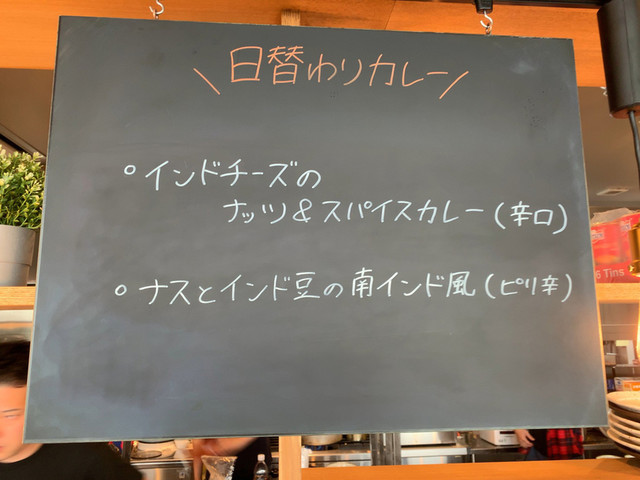 \日替わりカレー/
○インドチーズの
ナッツ&スパイスカレー(辛口)
○ナスとインド豆の南インド風(ピリ辛)
6 Tins